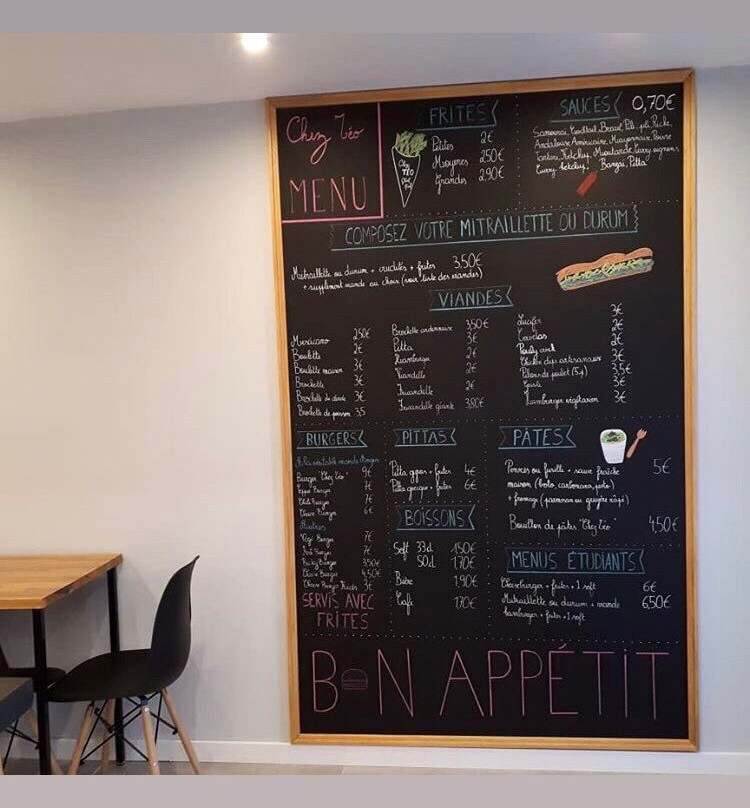 Chez Téo
MENU
FRITES
Petites 2€
Moyennes 2,50€
Grandes 2,90€
SAUCES 0,70€
Samouraï, Cocktail, Brasil, Pili-pili, Riche,
Andalouse, Américaine, Mayonnaise, Poivre
Tartare, Ketchup, Moutarde, Curry oignons,
Curry-ketchup, Banzaï, Pitta
COMPOSEZ VOTRE MITRAILLETTE OU DURUM
Mitraillette ou durum + crudités + frites 3,50€
+ supplément viande au choix (voir liste des viandes)
VIANDES
Mexicano 2,50€
Boulette 2€
Boulette maison 3€
Brochette 3€
Brochette de dinde 3€
Brochette de poisson 3,5
Brochette ardennaise 3,50€
Pitta 3€
Hamburger 2€
Viandelle 2€
Fricandelle 2€
Fricandelle géante 3,80€
Lucifer 3€
Cervelas 2€
Pouly crock 2€
Chicken dips artisanaux 3€
Pilons de poulet (5p) 3,5€
3€
Hamburger végétarien 3€
BURGERS
À la véritable viande
Burger "Chez Téo" 9€
Burger 7€
Chili Burger 7€
Classic Burger 6€
Autres
Végé Burger 7€
Burger 7€
Burger 3,50€
Burger 4,50€
Burger 3€
SERVIS AVEC
FRITES
PITTAS
Pitta gyros + frites 4€
Pitta grecque + frites 6€
BOISSONS
Soft 33cl 1,50€
50cl 1,70€
Bière 1,90€
Café 1,70€
PÂTES
Pennes ou fusilli + sauce fraîche 5€
maison (bolo, carbonara, pesto)
+ fromage (parmesan ou gruyère râpé)
Bouillon de pâtes "Chez Téo" 4,50€
MENUS ÉTUDIANTS
Cheeseburger + frites + 1 soft 6€
Mitraillette ou durum + viande 6,50€
hamburger + frites + 1 soft
BON APPÉTIT